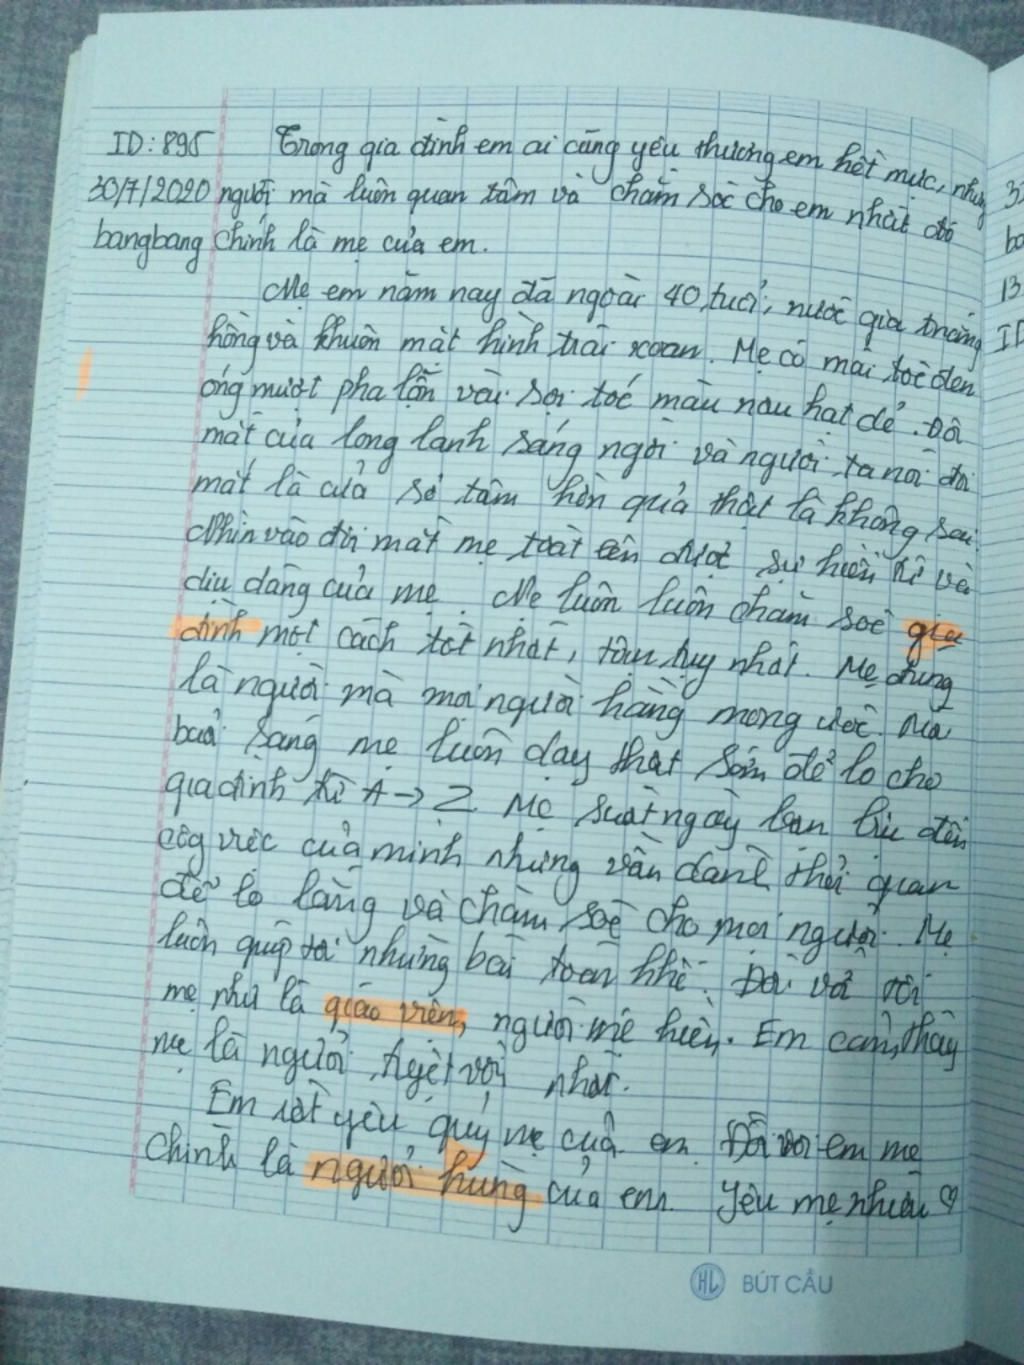 ID: 895 Trong gia đình em ai cũng yêu thương em hết mực, nhưng
30/7/2020 người mà luôn quan tâm và chăm sóc cho em nhất đó
bangbang chính là mẹ của em.
Mẹ em năm nay đã ngoài 40 tuổi, nước gia trắng
hồng và khuôn mặt hình trái xoan. Mẹ có mái tóc đen
óng mượt pha lẫn vài sợi tóc màu nâu hạt dẻ. Đôi
mắt của long lanh sáng ngời và người ta nói đôi
mắt là cửa sổ tâm hồn quả thật là không sai.
Nhìn vào đôi mắt mẹ toát lên được sự hiền từ và
dịu dàng của mẹ. Mẹ luôn luôn chăm sóc gia
đình một cách tốt nhất, tận tụy nhất. Mẹ đúng
là người mà mọi người hằng mong ước. Mỗi
buổi sáng mẹ luôn dạy thật sớm để lo cho
gia đình từ A → Z. Mẹ suốt ngày bận bịu đến
công việc của mình nhưng vẫn dành thời quan
để lo lắng và chăm sóc cho mọi người. Mẹ
luôn giúp tôi những bài toán khó. Đối với tôi
mẹ như là giáo viên, người mẹ hiền. Em cảm thấy
mẹ là người tuyệt vời nhất.
Em rất yêu quý mẹ của em. Đối với em mẹ
chính là người hùng của em. Yêu mẹ nhiều ♡
HL BÚT CẦU
32
ba
13
ID